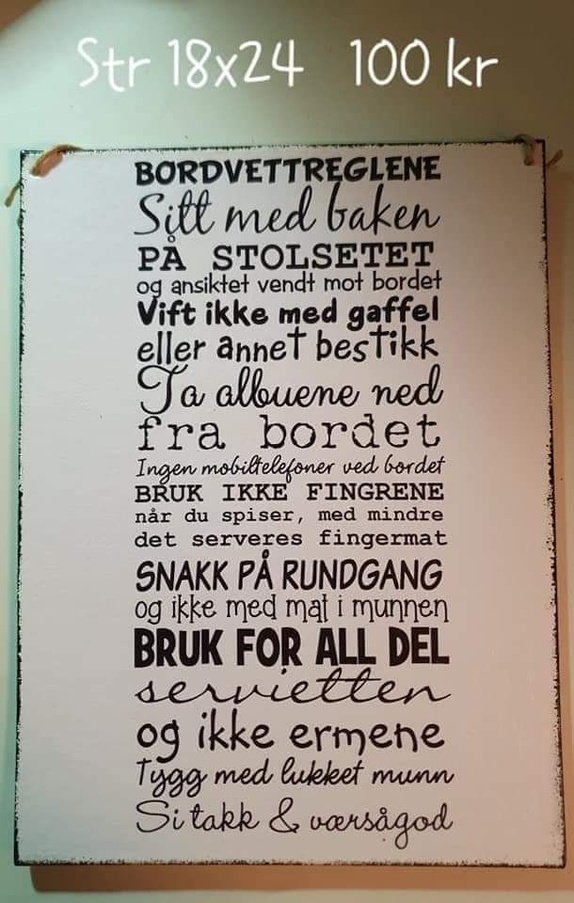 Str 18x24 100 kr
BORDVETTREGLENE
Sitt med baken
PÅ STOLSETET
og ansiktet vendt mot bordet
Vift ikke med gaffel
eller annet bestikk
Ta albuene ned
fra bordet
Ingen mobiltelefoner ved bordet
BRUK IKKE FINGRENE
når du spiser, med mindre
det serveres fingermat
SNAKK PÅ RUNDGANG
og ikke med mat i munnen
BRUK FOR ALL DEL
servietten
og ikke ermene
Tygg med lukket munn
Si takk & værsågod